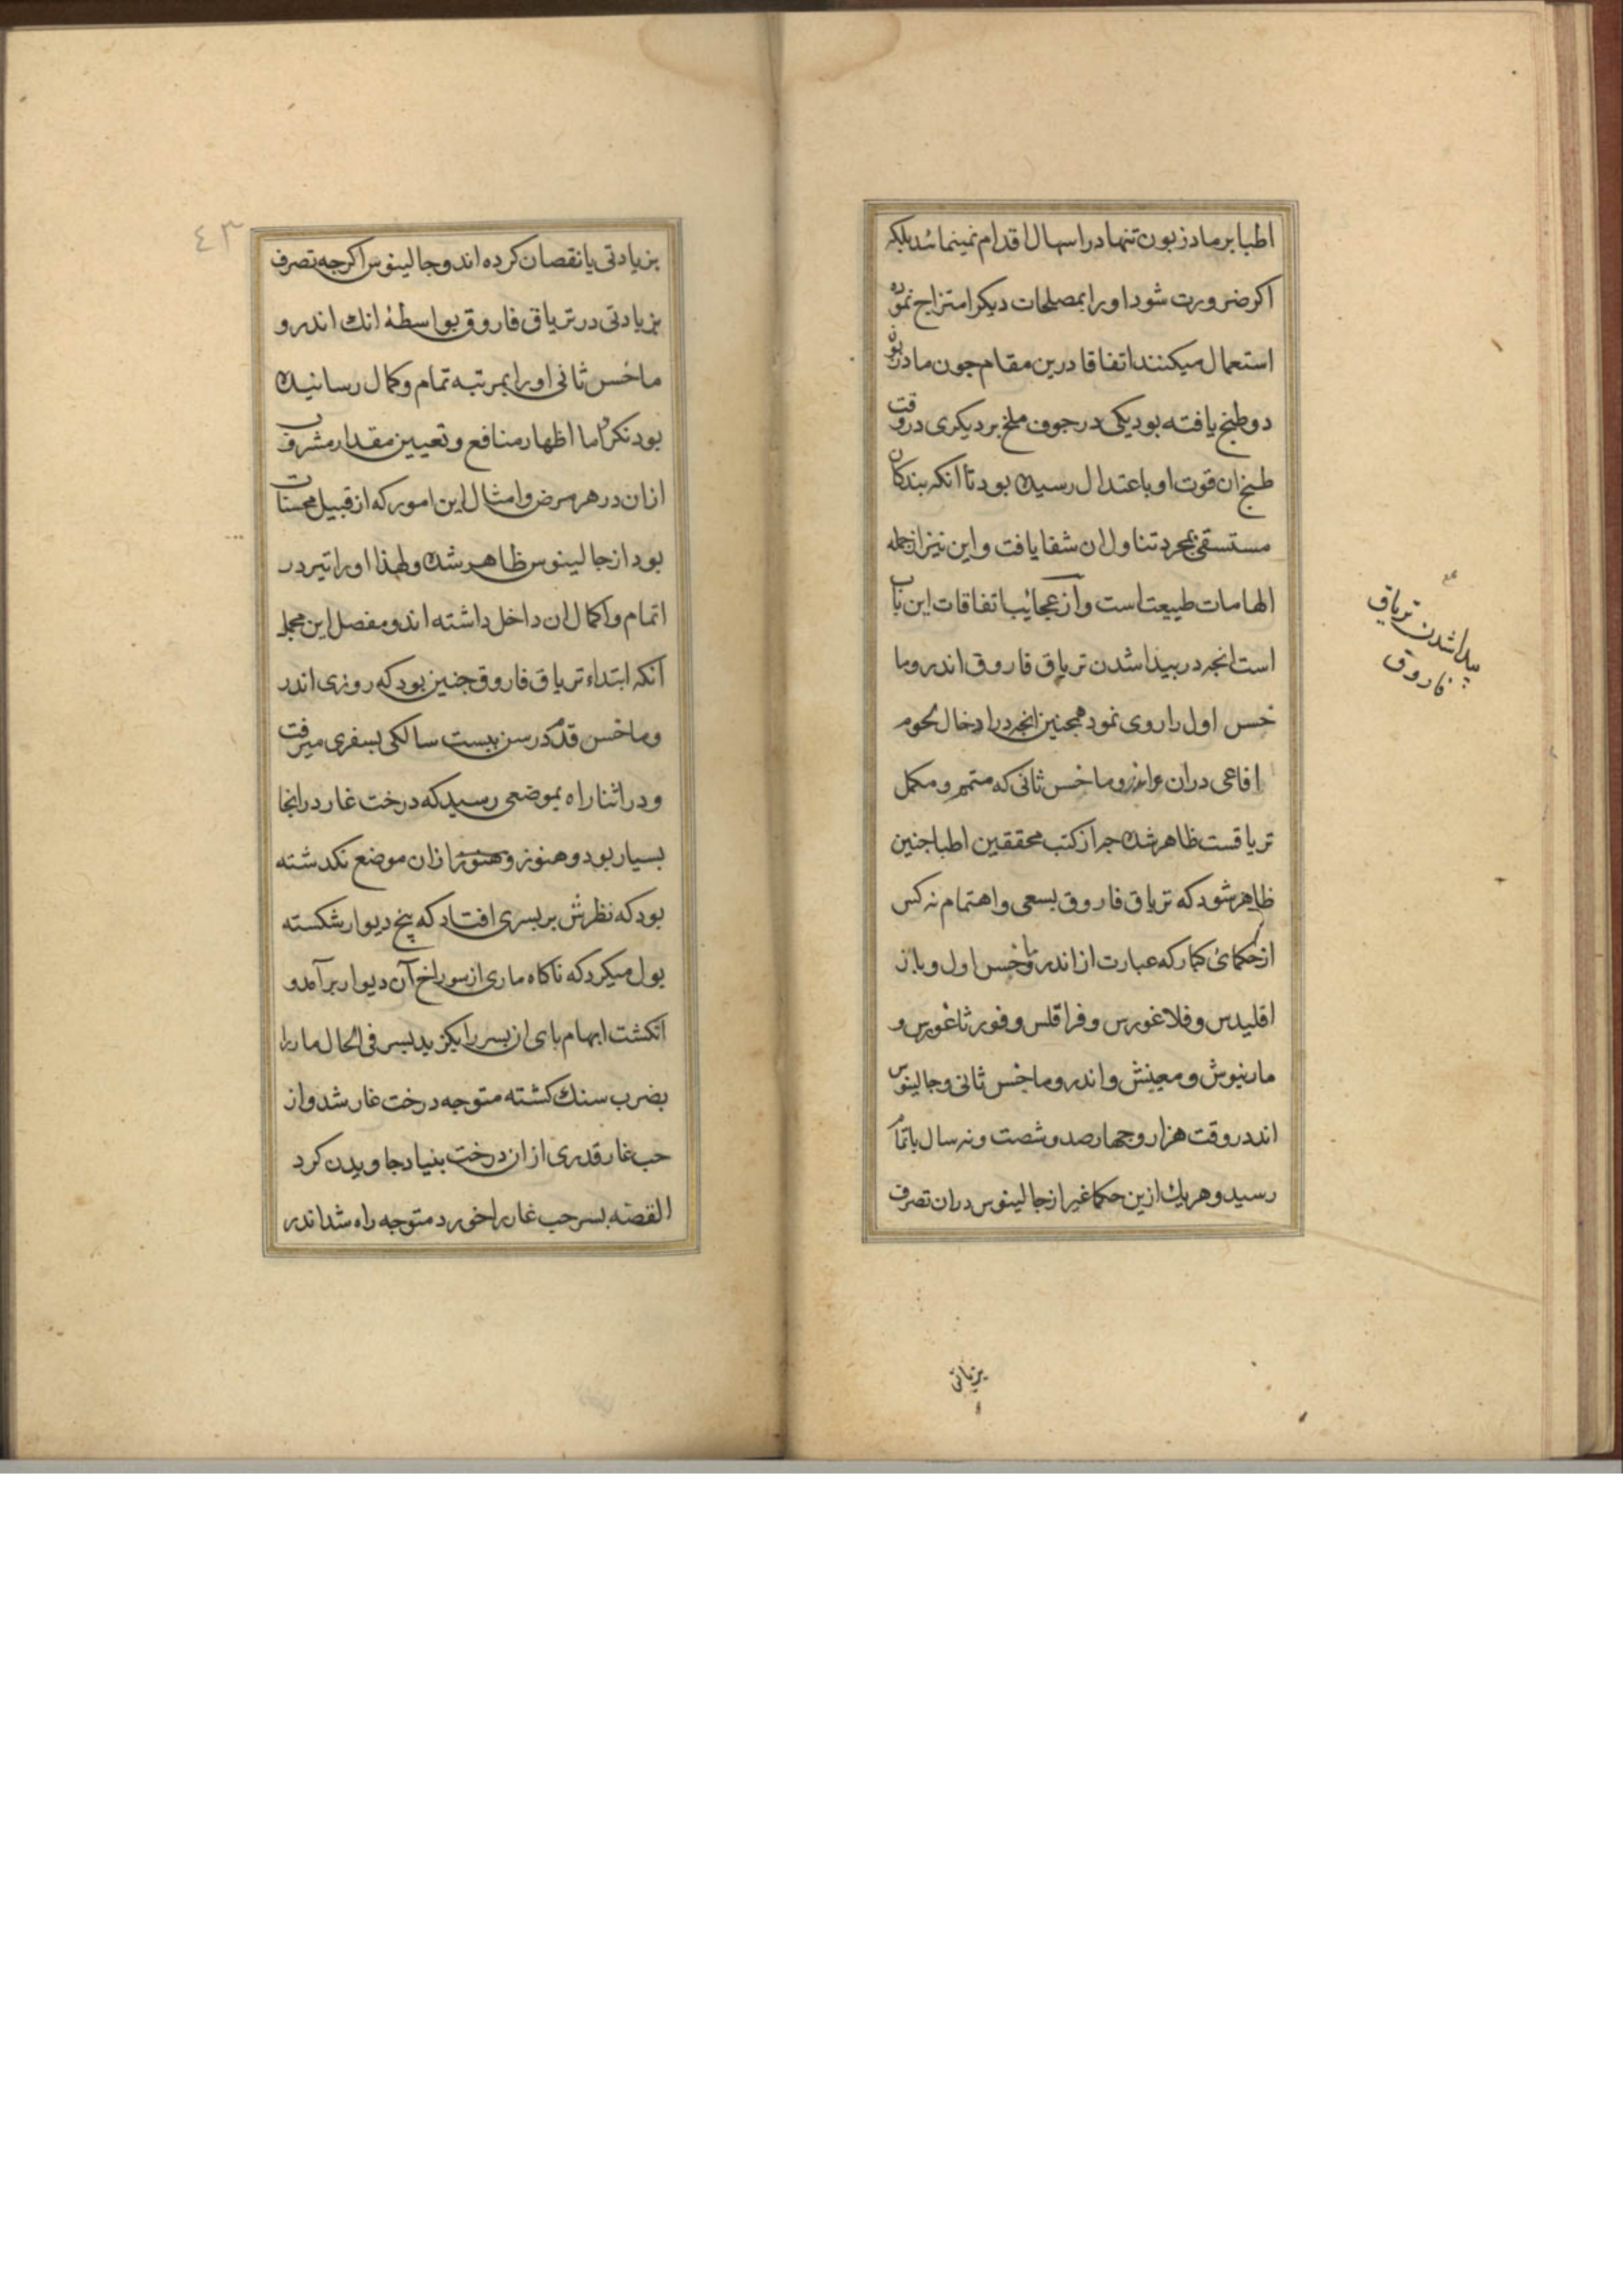 اطبا بر مادزیون تنها در اسهال اقدام نمینمائند بلکه
اکر ضرورت شود او را بمصلحات دیکر امتزاج نموده
استعمال میکنند اتفاقا درین مقام جون مادزیون
دو طبخ یافته بود یکی در جوف ملخ بر دیکری در وقت
طبخ ان قوت او باعتدال رسیده بود تا انکه بندکان
مستسقی بمجرد تناول ان شفا یافت و این نیز از جمله
الهامات طبیعت است و از عجائب اتفاقات این باب
است انجه در بیدا شدن تریاق فاروق اندروما
خس اول را روی نمود همجنین انجه در ادخال لحوم
افاعی دران اندروماخس ثانی که متمم و مکمل
تریاقست ظاهر شده جه از کتب محققین اطبا جنین
ظاهر شود که تریاق فاروق بسعی و اهتمام نه کس
از حکمائ کبار که عبارت از اندروماخس اول و باز
اقلیدس و فلاغورس و فراقلس و فورثاغورس و
مارنیوش و معینش و اندروماخس ثانی و جالینوس
اند در وقت هزار و جهارصد و شصت و نه سال باتمام
رسید و هر یك ازین حکما غیر از جالینوس دران تصرف
پیدا شدن تریاق
فاروق
٤٣
بزیادتی یا نقصان کرده اند و جالینوس اکرجه تصرف
بزیادتی در تریاق فاروق بواسطهٔ انك اندرو
ماخس ثانی او را بمرتبه تمام و کمال رسانیده
بود نکرد اما اظهار منافع و تعیین مقدار مشروب
ازان در هر مرض و امثال این امور که از قبیل محسنات
بود از جالینوس ظاهر شده و لهذا او را تیر در
اتمام و اکمال ان داخل داشته اند و مفصل این مجمل
آنکه ابتداء تریاق فاروق جنین بود که روزی اندر
وماخس قدم در سن بیست سالکی بسفری میرفت
و در اثنا راه بموضعی رسید که درخت غار در انجا
بسیار بود و هنوز و هنوز ازان موضع نکدشته
بود که نظرش بر بسری افتاد که پنج دیوار شکسته
بول میکرد که ناکاه ماری از سوراخ آن دیوار برآمد و
انکشت ابهام بای ان بسر را بکزید بسر فی الحال مار را
بضرب سنك کشته متوجه درخت غار شد و از
حب غار قدری از ان درخت بنیاد جاویدن کرد
القصه بسر حب غار را خورد متوجه راه شد اندر